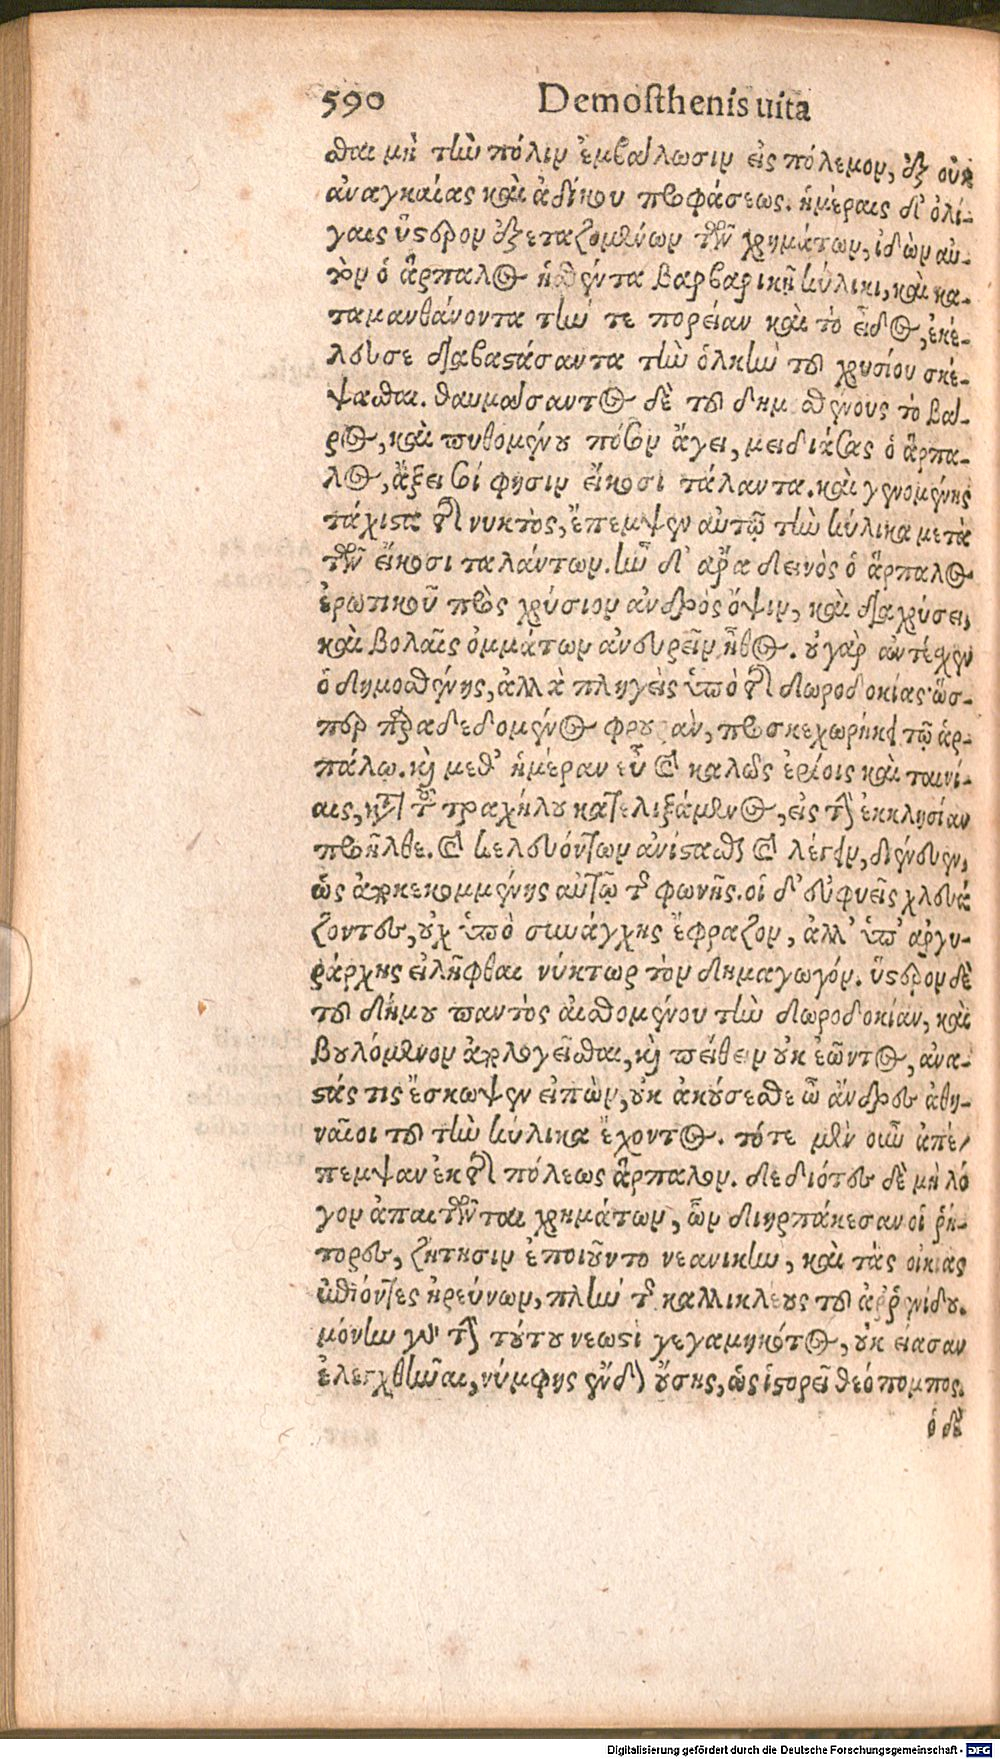 590 Demosthenis uita
σθαι μὴ τὴν πόλιν ἐμβάλωσιν εἰς πόλεμον, ἐξ οὐκ
ἀναγκαίας καὶ ἀδίκου προφάσεως. ἡμέραις δ' ὀλί-
γαις ὕστερον ἐξεταζομένων τῶν χρημάτων, ἰδὼν αὐ-
τὸν ὁ ἅρπαλος ἡσθέντα βαρβαρικῇ κύλικι, καὶ κα-
ταμανθάνοντα τήν τε πορείαν καὶ τὸ εἶδος, ἐκέ-
λευσε διαβαστάσαντα τὴν ὁλκὴν τοῦ χρυσίου σκέ-
ψασθαι. θαυμάσαντος δὲ τοῦ δημοσθένους τὸ βά-
ρος, καὶ πυθομένου πόσον ἄγει, μειδιάσας ὁ ἅρπα-
λος, ἄξει σοί φησιν εἴκοσι τάλαντα. καὶ γενομένης
τάχιστα τῆς νυκτὸς, ἔπεμψεν αὐτῷ τὴν κύλικα μετὰ
τῶν εἴκοσι ταλάντων. ἦν δ' ἄρα δεινὸς ὁ ἅρπαλος
ἐρωτικοῦ πρὸς χρύσιον ἀνδρὸς ὄψιν, καὶ διαχύσει,
καὶ βολαῖς ὀμμάτων ἀνευρεῖν ἦθος. οὐ γὰρ ἀντέσχεν
ὁ δημοσθένης, ἀλλὰ πληγεὶς ὑπὸ τῆς δωροδοκίας ὥσ-
περ παραδεδομένος φρουρὰν, προσκεχωρήκει τῷ ἁρ-
πάλω. καὶ μεθ' ἡμέραν εὖ καὶ καλῶς ἐρίοις καὶ ταινί-
αις, κατὰ τοῦ τραχήλου κατελιξάμενος, εἰς τὴν ἐκκλησίαν
προῆλθε. καὶ κελευόντων ἀνίστασθαι καὶ λέγειν, διένευεν,
ὡς ἀποκεκομμένης αὐτῷ τῆς φωνῆς. οἱ δ' εὐφυεῖς χλευά
ζοντες, οὐχ ὑπὸ συνάγχης ἔφραζον, ἀλλ' ὑπ' ἀργυ-
ράγχης εἰλῆφθαι νύκτωρ τὸν δημαγωγόν. ὕστερον δὲ
τοῦ δήμου παντὸς αἰσθομένου τὴν δωροδοκίαν, καὶ
βουλόμενον ἀπολογεῖσθαι, καὶ πείθειν οὐκ ἐῶντος, ἀνα-
στάς τις ἔσκωψεν εἰπὼν, οὐκ ἀκούσεσθε ὦ ἄνδρες ἀθη-
ναῖοι τοῦ τὴν κύλικα ἔχοντος. τότε μὲν οὖν ἀπέ-
πεμψαν ἐκ τῆς πόλεως ἅρπαλον. δεδιότες δὲ μὴ λό
γον ἀπαιτῶνται χρημάτων, ὧν διηρπάκεσαν οἱ ῥή-
τορες, ζήτησιν ἐποιοῦντο νεανικὴν, καὶ τὰς οἰκίας
ἐπιόντες ἠρεύνων, πλὴν τῆς καλλικλέους τοῦ ἀρῤενίδου.
μόνην γὰρ τὴν τούτου νεωστὶ γεγαμηκότος, οὐκ εἴασαν
ἐλεγχθῆναι, νύμφης ἔνδον οὔσης, ὡς ἱστορεῖ θεόπομπος.
ὁ δὲ
Digitalisierung gefördert durch die Deutsche Forschungsgemeinschaft - DFG